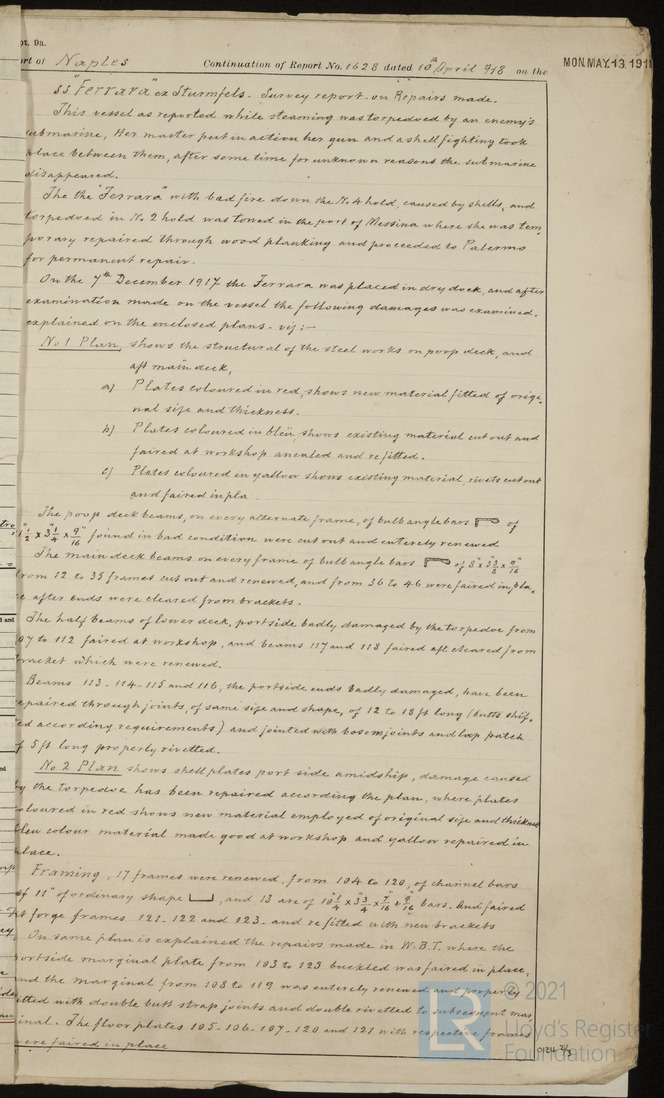 pt. 9a.
ort of Naples Continuation of Report No. 1628 dated 10th April 918 on the MON. MAY. 13. 191
SS "Ferrara" ex Sturmfels - Survey report on Repairs made.
This vessel as reported while steaming was torpedoed by an enemy's
submarine, Her master put in action her gun and a shell fighting took
place between them, after some time for unknown reasons the submarine
disappeared.
The the "Ferrara" with bad fire down the No. 4 hold, caused by shells, and
torpedoed in No 2 hold was towed in the port of Messina where she was tem
porary repaired through wood planking and proceeded to Palermo
for permanent repair.
On the 7th December 1917 the Ferrara was placed in dry dock, and after
examination made on the vessel the following damages was examined,
explained on the enclosed plans - viz :-
No 1 Plan, shows the structural of the steel works on poop deck, and
aft main deck,
a) Plates coloured in red, shows new material fitted of origi-
nal size and thickness.
b) Plates coloured in bleu, shows existing material cut out and
faired at workshop anealed and refitted.
c) Plates coloured in yallow shows existing material, rivets cut out
and faired in pla
The poop deck beams, on every alternate frame, of bulb angle bars of
1/2 x 3 1/4 x 9/16 found in bad conditive were cut out and enterely renewed
The main deck beams on every frame of bulb angle bars of 8" x 3 3/8 x 9/16
from 12 to 35 frames cut out and renewed, and from 36 to 46 were faired in pla,
ce after ends were cleared from brackets.
The half beams of lower deck, portside badly damaged by the torpedoe from
07 to 112 faired at workshop, and beams 117 and 118 faired aft cleared from
bracket which were renewed.
Beams 113-114-115 and 116, the portside ends badly damaged, have been
epaired through joints, of same size and shape, of 12 to 18 ft long (butts shif,
ed according requirements) and jointed with bosom joints and lap patch
f 5 ft long properly rivetted.
No 2 Plan shows shell plates port side amidship, damage caused
by the torpedoe has been repaired according the plan, where plates
coloured in red shows new material employed of original size and thickness
bleu colour material made good at workshop and yallow repaired in
place.
Framing, 17 frames were renewed, from 104 to 120, of channel bars
of 11" of ordinary shape, and 13 are of 10 1/4 x 3 3/4 x 7/16 x 9/16 bars. And faired
at forge frames 121-122 and 123 - and refitted with new brackets
On same plan is explained the repairs made in W.B.T. where the
portside marginal plate from 103 to 123 buckled was faired in place,
and the marginal from 108 to 119 was enterely renewed and properly
itted with double butt strap joints and double rivetted to subsequent mar
inal. The floor plates 105-106-107-120 and 121 with respective frames
were faired in place
© 2021
Lloyd's Register
Foundation